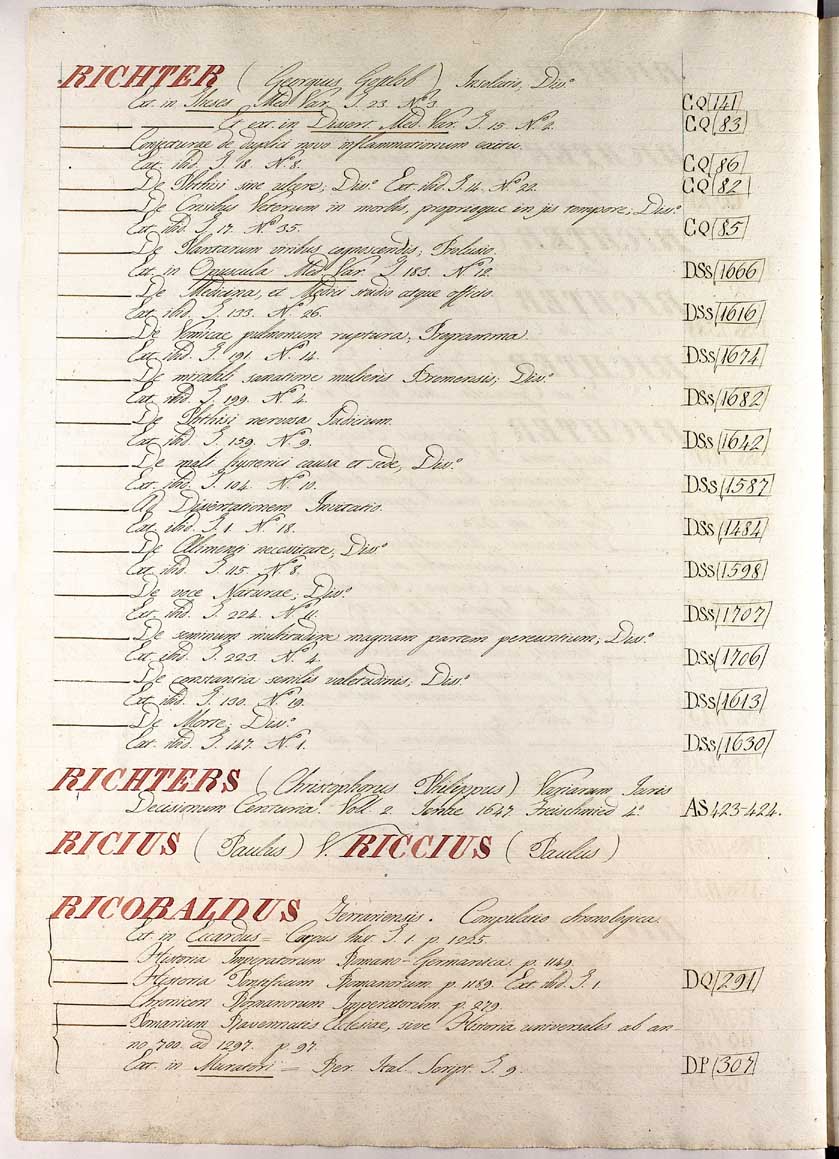 RICHTER (Georgius Gottlob) Insolatio, Diss.
Ext. in Theses Med Var. T. 23. Nº 3. CQ 141
Et ext. in Dissert Med Var. T. 15. Nº 2. CQ 83
Conjecturae de duplici novo inflammationum exitu.
Ext. ibid. T. 18. Nº 8. CQ 86
De Phthisi sine ulcere; Diss. Ext. ibid. T. 14. Nº 22. CQ 82
De Crisibus Veterum in morbis, proprioque in jis tempore; Diss.
Ext. ibid. T. 17. Nº 35. CQ 85
De Plantarum viribus cognoscendis; Prolusio.
Ext. in Opuscula Med Var. T. 183. Nº 12. DSs 1666
De Medicina, et Medici studio atque officio.
Ext. ibid. T. 133. Nº 26. DSs 1616
De Vomicae pulmonum ruptura; Programma.
Ext. ibid. T. 191. Nº 14. DSs 1674
De mirabili sanatione mulieris Bremensis; Diss.
Ext. ibid. T. 199. Nº 4. DSs 1682
De Phthisi nervosa Judicium.
Ext. ibid. T. 159. Nº 9. DSs 1642
De mali hysterici causa et sede, Diss.
Ext. ibid. T. 104. Nº 10. DSs 1587
Ad Dissertationem Invitatio.
Ext. ibid. T. 1. Nº 18. DSs 1484
De Alimenti necessitate, Diss.
Ext. ibid. T. 115. Nº 8. DSs 1598
De voce Naturae; Diss.
Ext. ibid. T. 224. Nº 11. DSs 1707
De seminum multitudine magnam partem pereuntium; Diss.
Ext. ibid. T. 223. Nº 4. DSs 1706
De constantia senilis valetudinis; Diss.
Ext. ibid. T. 130. Nº 19. DSs 1613
De Morte; Diss.
Ext. ibid. T. 147. Nº 1. DSs 1630
RICHTERS (Christophorus Philippus) Variarum Juris
Decisionum Centuria. Voll. 2. Jenae 1647 Freischmied 4º. AS 423-424.
RICIUS (Paulus) V. RICCIUS (Paulus)
RICOBALDUS Ferrariensis. Compilatio chronologica
Ext. in Eccardus = Corpus hist. T. 1. p. 1225.
Historia Imperatorum Romano-Germanica. p. 1149.
Historia Pontificum Romanorum. p. 1189. Ext. ibid. T. 1. DQ 291
Chronicon Romanorum Imperatorum. p. 279.
Pomarium Ravennatis Ecclesiae, sive Historia universales ab an-
no 700. ad 1297. p. 97.
Ext. in Muratori = Rer. Ital. Script. T. 9. DP 307